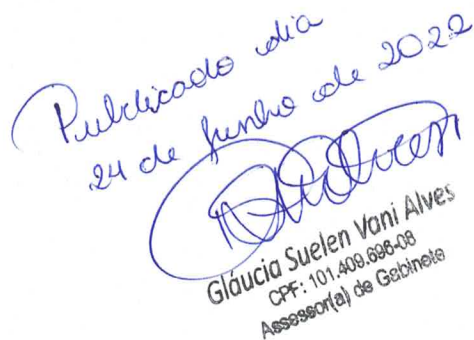 Publicado dia
24 de Junho de 2022
Gláucia Suelen Vani Alves
CPF: 101.409.696-08
Assessor(a) de Gabinete